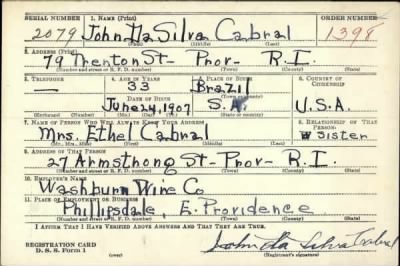 SERIAL NUMBER 1. NAME (Print) ORDER NUMBER
2079 John Da Silva Cabral 1398
(First) (Middle) (Last)
2. ADDRESS (Print)
79 Trenton St- Prov- R.I.
(Number and street or R. F. D. number) (Town) (County) (State)
3. TELEPHONE 4. AGE IN YEARS 5. PLACE OF BIRTH 6. COUNTRY OF CITIZENSHIP
— 33 Brazil
DATE OF BIRTH
June 24, 1907 S.A. U.S.A.
(Exchange) (Number) (Mo.) (Day) (Yr.) (State or country)
7. NAME OF PERSON WHO WILL ALWAYS KNOW YOUR ADDRESS 8. RELATIONSHIP OF THAT PERSON
Mrs. Ethel Cabral Sister
(Mr., Mrs., Miss) (First) (Middle) (Last)
9. ADDRESS OF THAT PERSON
27 Armsthong St- Prov- R.I.
(Number and street or R. F. D. number) (Town) (County) (State)
10. EMPLOYER'S NAME
Washburn Wire Co
11. PLACE OF EMPLOYMENT OR BUSINESS
Phillipsdale, E. Providence
(Number and street or R. F. D. number) (Town) (County) (State)
I AFFIRM THAT I HAVE VERIFIED ABOVE ANSWERS AND THAT THEY ARE TRUE.
REGISTRATION CARD
D. S. S. Form 1 (over) John Da Silva Cabral
(Registrant's signature)